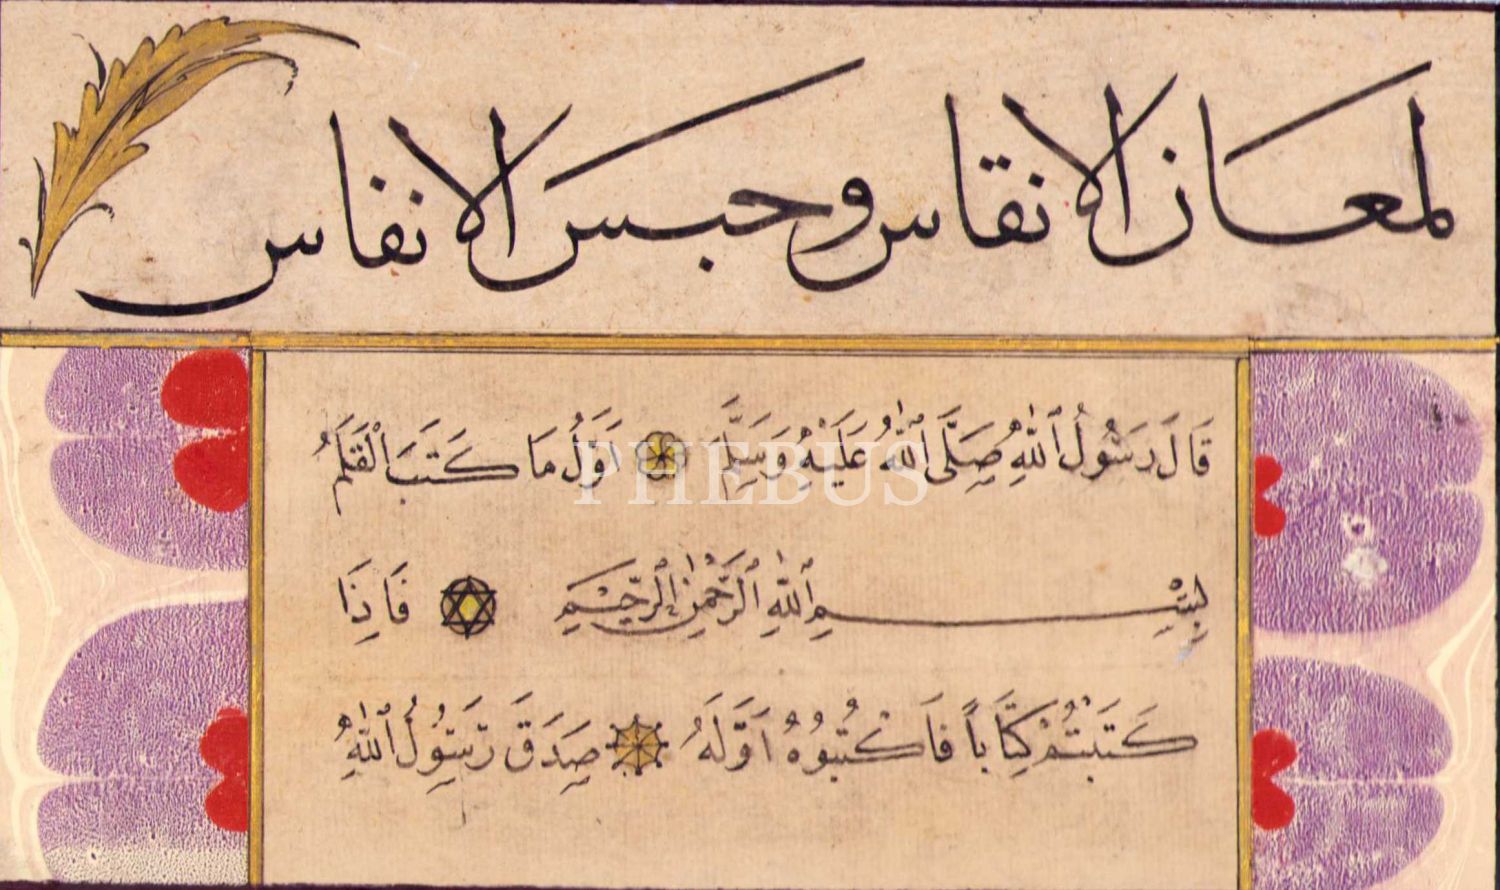 لمعان الانقاس وحبس الانفاس
قَالَ رَسُولُ ٱللّٰهِ صَلَّى ٱللّٰهُ عَلَيْهِ وَسَلَّمَ اَوَّلُ مَا كَتَبَ الْقَلَمُ
بِسْمِ ٱللّٰهِ ٱلرَّحْمٰنِ ٱلرَّحِيمِ فَاِذَا
كَتَبْتُمْ كِتَاباً فَاكْتُبُوهُ اَوَّلَهُ صَدَقَ رَسُولُ ٱللّٰهِ
PHEBUS